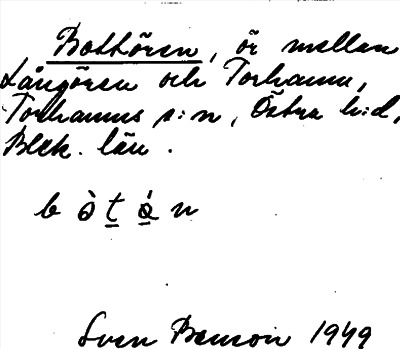 Botthören, ör mellan
Långören och Torhamn,
Torhamns s:n, Östra h:d,
Blek. län.
b ò t ó n
Sven Benson 1949